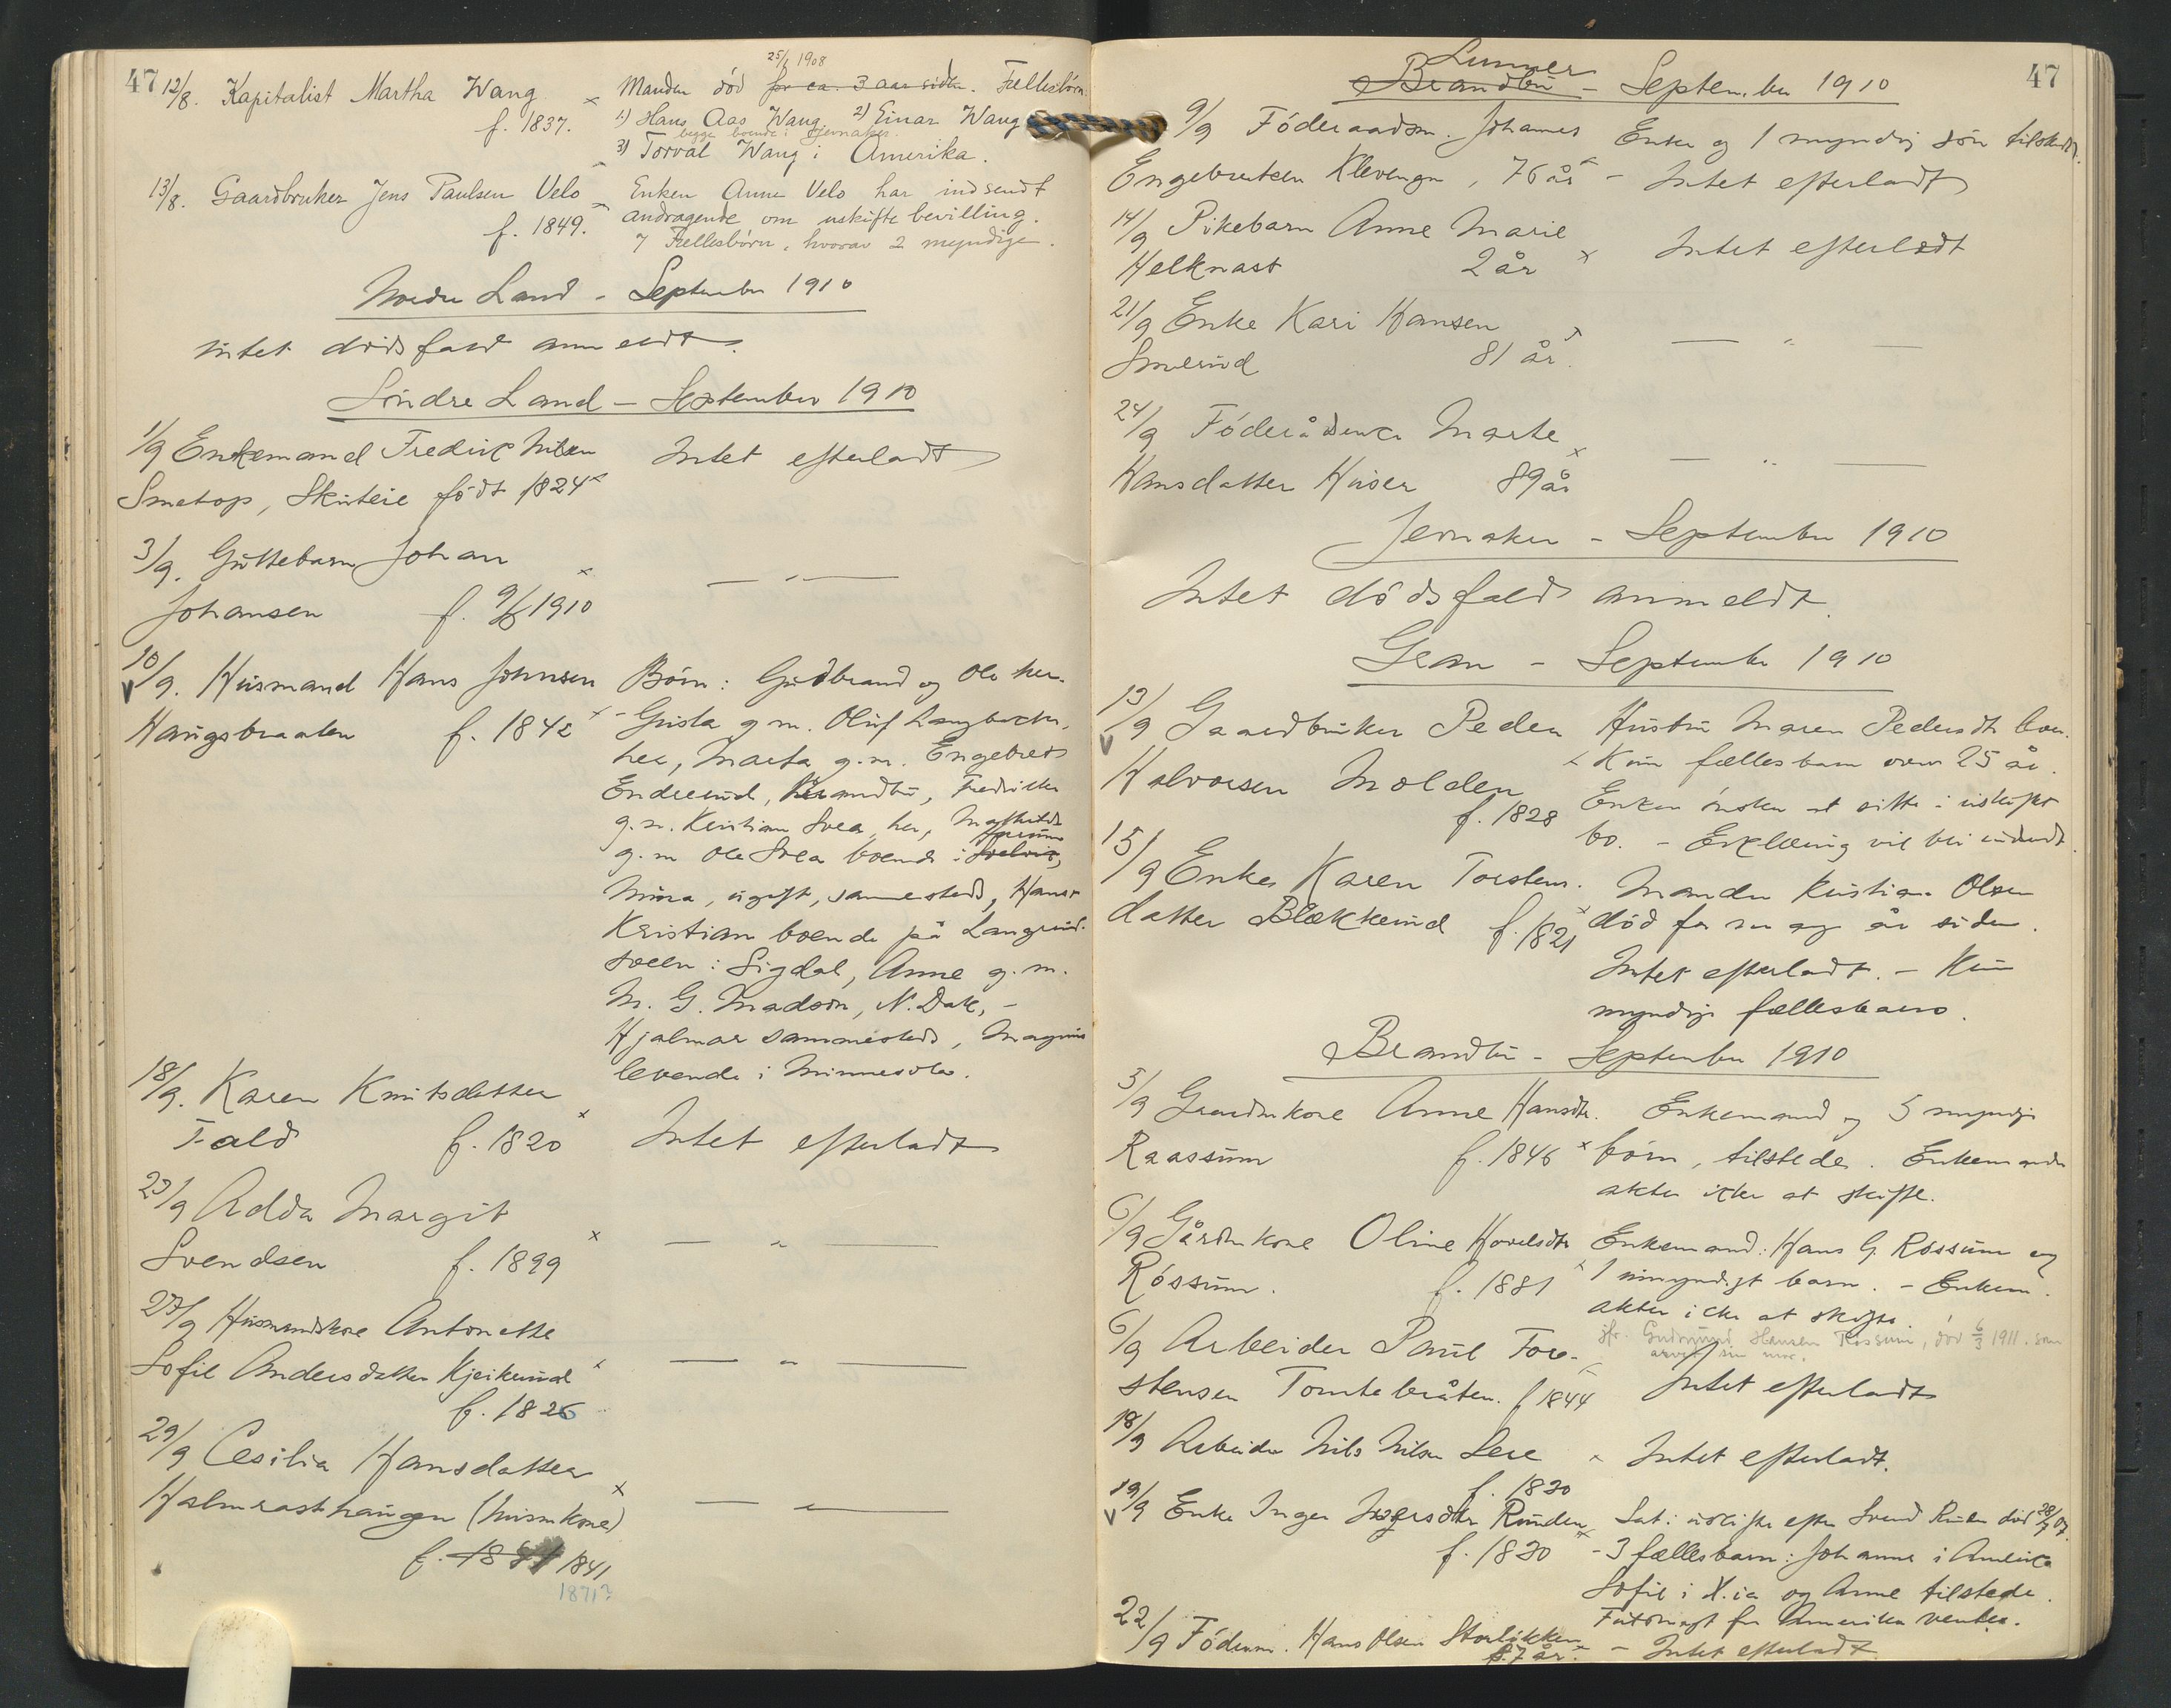 47
12/8. Kapitalist Martha Wang
f. 1837.
25/1 1908
Manden død for ca. 3 aar siden. Fellesbörn
1) Hans Aas Wang. 2) Einar Wang
begge boende i Jevnaker.
3) Torval Wang i Amerika.
13/8. Gaardbruker Jens Paulsen Velo
f. 1849.
Enken Anne Velo har indsendt
andragende om uskifte bevilling.
7 Fellesbörn, hvorav 2 myndige.
Nordre Land - September 1910
intet dödsfald anmeldt.
Söndre Land - September 1910
1/9 Enkemand Fredrik Nilsen
Smetop, Skuteie födt 1824
Intet efterladt
3/9. Guttebarn Johan
Johansen f. 9/6 1910
— " —
10/9. Husmand Hans Johnsen
Haugsbraaten f. 1842
Börn: Gudbrand og Ole her.
- Gusta g m. Oluf
her, Marta g.m. Engebret
Endrerud, Brandbu, Fredrikke
g.m. Kristian Svea, her,
g.m Ole Svea boende i
Mina, ugift, sammesteds, Hans
Kristian boende på Langrud-
sveen i Sigdal, Anne g.m.
M. G. Madson, N. Dak, -
Hjalmar sammesteds, Magnus
levende i Minnesota.
18/9. Karen Knutsdatter
Fald f. 1820
Intet efterladt
23/9 Adda Margit
Svendsen f. 1899
— " —
27/9 Husmandskone Antonette
Sofie Andersdatter Kjeikerud
f. 1826
— " —
29/9 Cesilia Hansdatter
Halmrasthaugen (husm kone)
f. 1841
1871?
— " —
47
Lunner
Brandbu - September 1910
9/9 Föderaadsm. Johannes
Engebretsen Klevengen, 76 år
Enke og 1 myndig sön tilstede.
- Intet efterladt
14/9 Pikebarn Anne Marie
Helknast 2 år
Intet efterladt
21/9 Enke Kari Hansen
Smerud 81 år.
— " —
24/9 Föderådsenke Marte
Hansdatter Huser 89 år
— " —
Jevnaker - September 1910
Intet dödsfald anmeldt.
Gran - September 1910
13/9 Gaardbruker Peder
Halvorsen Molden
f. 1828
Hustru Maren Pedersdtr lever.
Kun fællesbarn over 25 år.
Enken önsker at sitte i uskiftet
bo. - Erklæring vil bli indsendt.
15/9 Enke Karen Torstens-
datter Blækkerud f. 1821
Manden Kristian Olsen
död for en og år siden.
Intet efterladt. - Kun
myndige fællesbarn.
Brandbu - September 1910
5/9 Gaardmkone Anne Hansdtr.
Raassum f. 1846
Enkemand og 5 myndige
börn, tilstede. Enkemanden
akter ikke at skifte.
6/9 Gårdmkone Oline Hovelsdtr
Røssum. f. 1881
Enkemand: Hans G. Røssum og
1 umyndigt barn. - Enkem.
akter icke at skifte.
jfr. Gudmund Hansen Røssum, død 6/3 1911. som
arvet sin mor.
6/9 Arbeider Paul Tor-
stensen Tomtebråten. f 1844
Intet efterladt
18/9 Arbeider Nils Nilsen Lee
f. 1830
Intet efterladt.
19/9 Enke Inger Ingersdtr Runden
f. 1830
Sat i uskifte efter Svend Ruden död 28/7 07.
- 3 fællesbarn: Johanne i Amerika
Sofie i X.ia og Anne tilstede.
Fuldmagt fra Amerika ventes.
22/9 Föderm. Hans Olsen Storlökken
87 år.
- Intet efterladt.